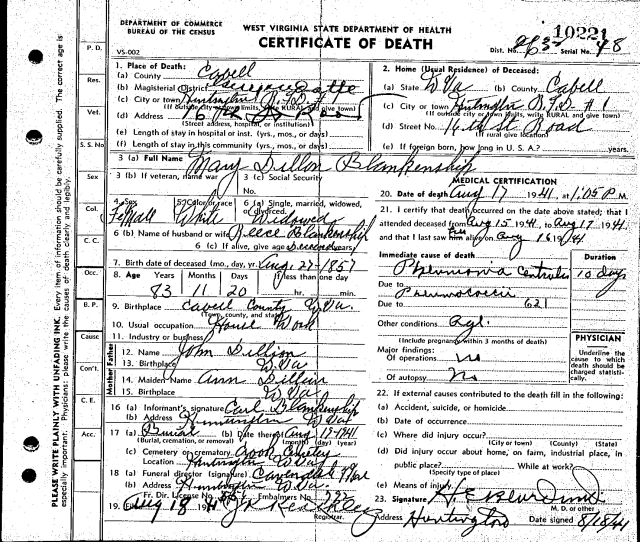 DEPARTMENT OF COMMERCE
BUREAU OF THE CENSUS
WEST VIRGINIA STATE DEPARTMENT OF HEALTH
10221
CERTIFICATE OF DEATH
Dist. No. 963 Serial No. 48
VS-002
1. Place of Death:
(a) County Cabell
(b) Magisterial District
(c) City or town Huntington R.F.D. #1
(If outside city or town limits, write RURAL and give town)
(d) Address 16th St Road
(Street address, hospital, or institution)
(e) Length of stay in hospital or inst. (yrs., mos., or days)
(f) Length of stay in this community. (yrs., mos., or days)
2. Home (Usual Residence) of Deceased:
(a) State W Va (b) County Cabell
(c) City or town Huntington R.F.D. #1
(If outside city or town limits, write RURAL and give town)
(d) Street No. 16th St. Road
(If rural give location)
(e) If foreign born, how long in U. S. A.? years.
3 (a) Full Name Mary Dillon Blankenship
3 (b) If veteran, name war
3 (c) Social Security No.
4. Sex Female
5. Color or race White
6 (a) Single, married, widowed, or divorced. Widowed
6 (b) Name of husband or wife Reece Blankenship
6 (c) If alive, give age Deceased years
7. Birth date of deceased (mo., day, yr.) Aug. 27-1857
8. AGE Years Months Days If less than one day
83 11 20 hr. min.
9. Birthplace Cabell County W Va.
(Town, county, and state)
10. Usual occupation House Work
11. Industry or business
Father
12. Name John Dillion
13. Birthplace W Va
Mother
14. Maiden Name Ann Dillon
15. Birthplace W Va
16 (a) Informant's signature Carl Blankenship
(b) Address Huntington W Va
17 (a) Burial (b) Date thereof Aug 19 1941
(Burial, cremation, or removal) (month) (day) (year)
(c) Cemetery or crematory
Location Huntington W Va
18 (a) Funeral director (signature)
(b) Address Huntington W Va.
Fr. Dir. License No. Embalmers No.
19. Aug 18 41
Registrar.
MEDICAL CERTIFICATION
20. Date of death Aug 17 1941 at 1:05 P M
21. I certify that death occurred on the date above stated; that I
attended deceased from Aug 15 1941, to Aug 17 1941
and that I last saw her alive on Aug 16 1941
Immediate cause of death Duration
Pneumonia 10 days
Due to
Due to 621
Other conditions age
(Include pregnancy within 3 months of death)
Major findings:
Of operations no
Of autopsy no
PHYSICIAN
Underline the cause to which death should be charged statistically.
22. If external causes contributed to the death fill in the following:
(a) Accident, suicide, or homicide.
(b) Date of occurrence
(c) Where did injury occur?
(City or town) (County) (State)
(d) Did injury occur about home, on farm, industrial place, in
public place? While at work?
(Specify type of place)
(e) Means of injury
23. Signature
M. D. or other
Address Huntington Date signed 8/18/41
P. D.
Res.
Vet.
S. S. No
Sex
Col.
C. C.
Occ.
B. P.
Cause
Con't.
C. E.
Acc.
PLEASE WRITE PLAINLY WITH UNFADING INK. Every item of information should be carefully supplied. The correct age is
especially important. Physicians: please write the causes of death clearly and legibly.